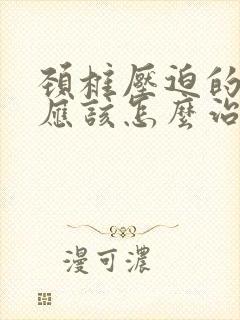 頚椎壓迫的
應該怎麼治
漫可濃